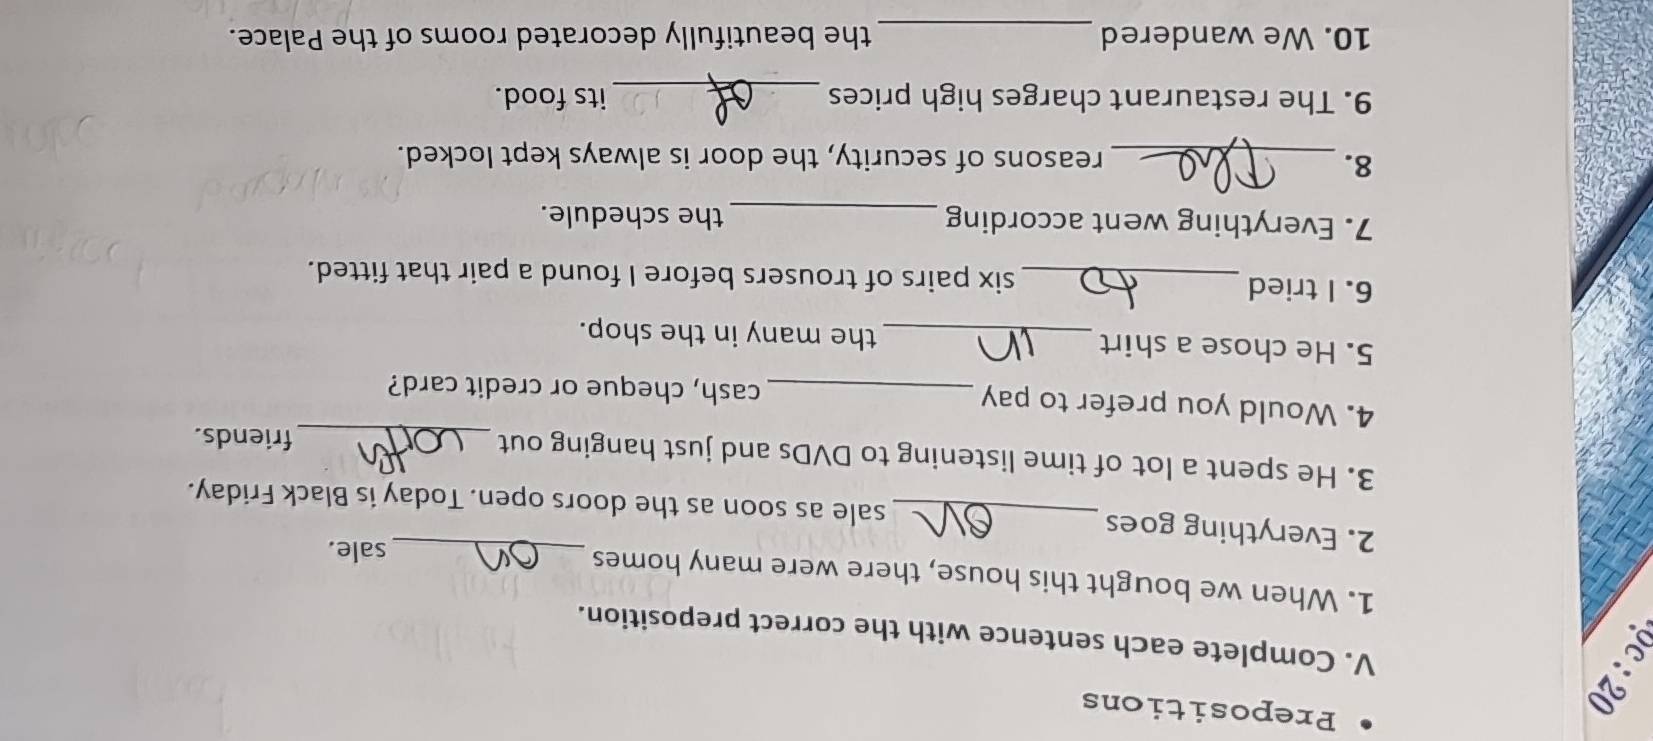 • Prepositions
V. Complete each sentence with the correct preposition.
1. When we bought this house, there were many homes on sale.
2. Everything goes on sale as soon as the doors open. Today is Black Friday.
3. He spent a lot of time listening to DVDs and just hanging out with friends.
4. Would you prefer to pay ________ cash, cheque or credit card?
5. He chose a shirt in the many in the shop.
6. I tried to six pairs of trousers before I found a pair that fitted.
7. Everything went according ________ the schedule.
8. The reasons of security, the door is always kept locked.
9. The restaurant charges high prices of its food.
10. We wandered ________ the beautifully decorated rooms of the Palace.
ọc: 20